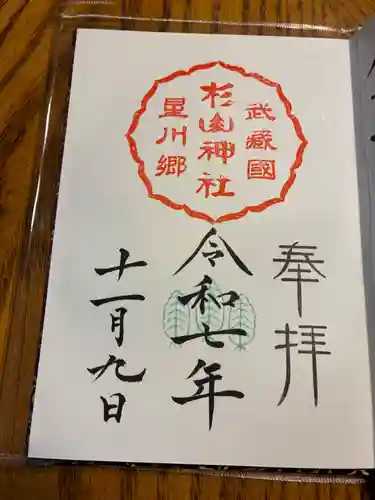 武藏國
杉山神社
星川郷
奉拝
令和七年
十一月九日